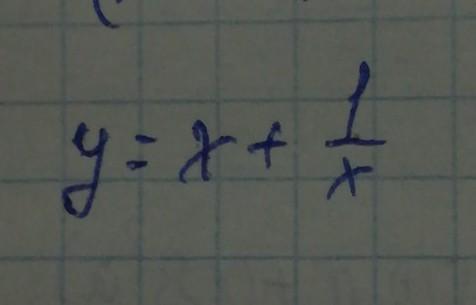 y = x + 1/x